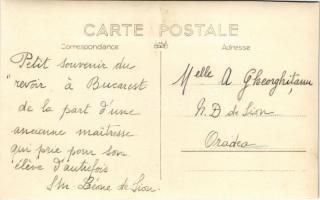 CARTE POSTALE
Correspondance
Adresse
Petit souvenir du
"revoir" à Bucarest
de la part d'une
ancienne maîtresse
qui prie pour son
élève d'autrefois
Sr M. Léone de Sion.
Melle A Gheorghițanu
N. D de Sion
Oradea